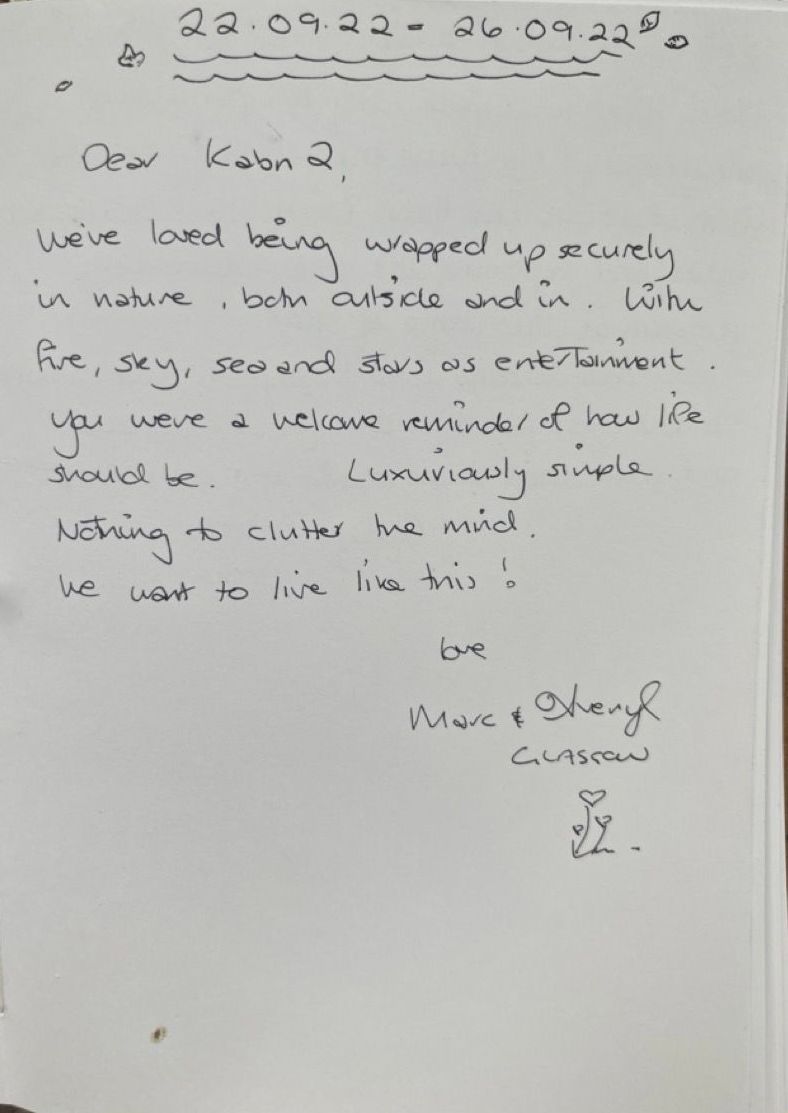 22.09.22 - 26.09.22
Dear Kabn 2,
We've loved being wrapped up securely
in nature, both outside and in. With
fire, sky, sea and stars as entertainment.
You were a welcome reminder of how life
should be. Luxuriously simple.
Nothing to clutter the mind.
We want to live like this!
love
Marc & Sheryl
GLASGOW